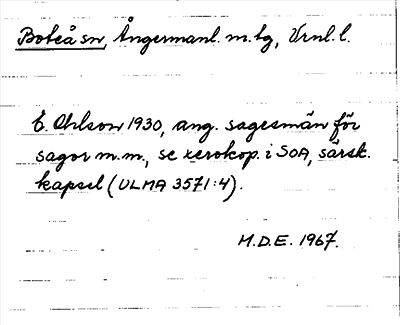 Boteå sn, Ångermanl. m.tg, Vrnl. l.
E. Ohlson 1930, ang. sagesmän för
sagor m.m., se xerokop. i SOA, särsk.
kapsel (ULMA 3571:4).
M.D.E. 1967.